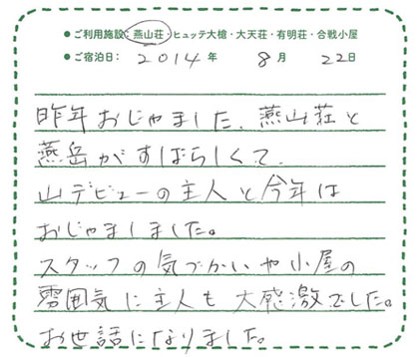 ● ご利用施設：燕山荘・ヒュッテ大槍・大天荘・有明荘・合戦小屋
● ご宿泊日： 2014 年 8 月 22 日
昨年おじゃました、燕山荘と
燕岳がすばらしくて
山デビューの主人と今年は
おじゃましました。
スタッフの気づかいや小屋の
雰囲気に主人も大感激でした。
お世話になりました。